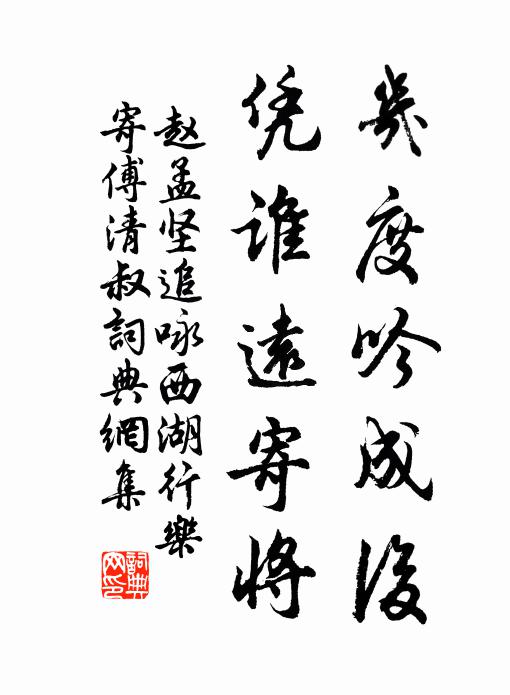 幾度吟成後
凭誰遠寄將
赵孟坚追咏西湖行樂
寄傅清叔詞典網集
詞典网印